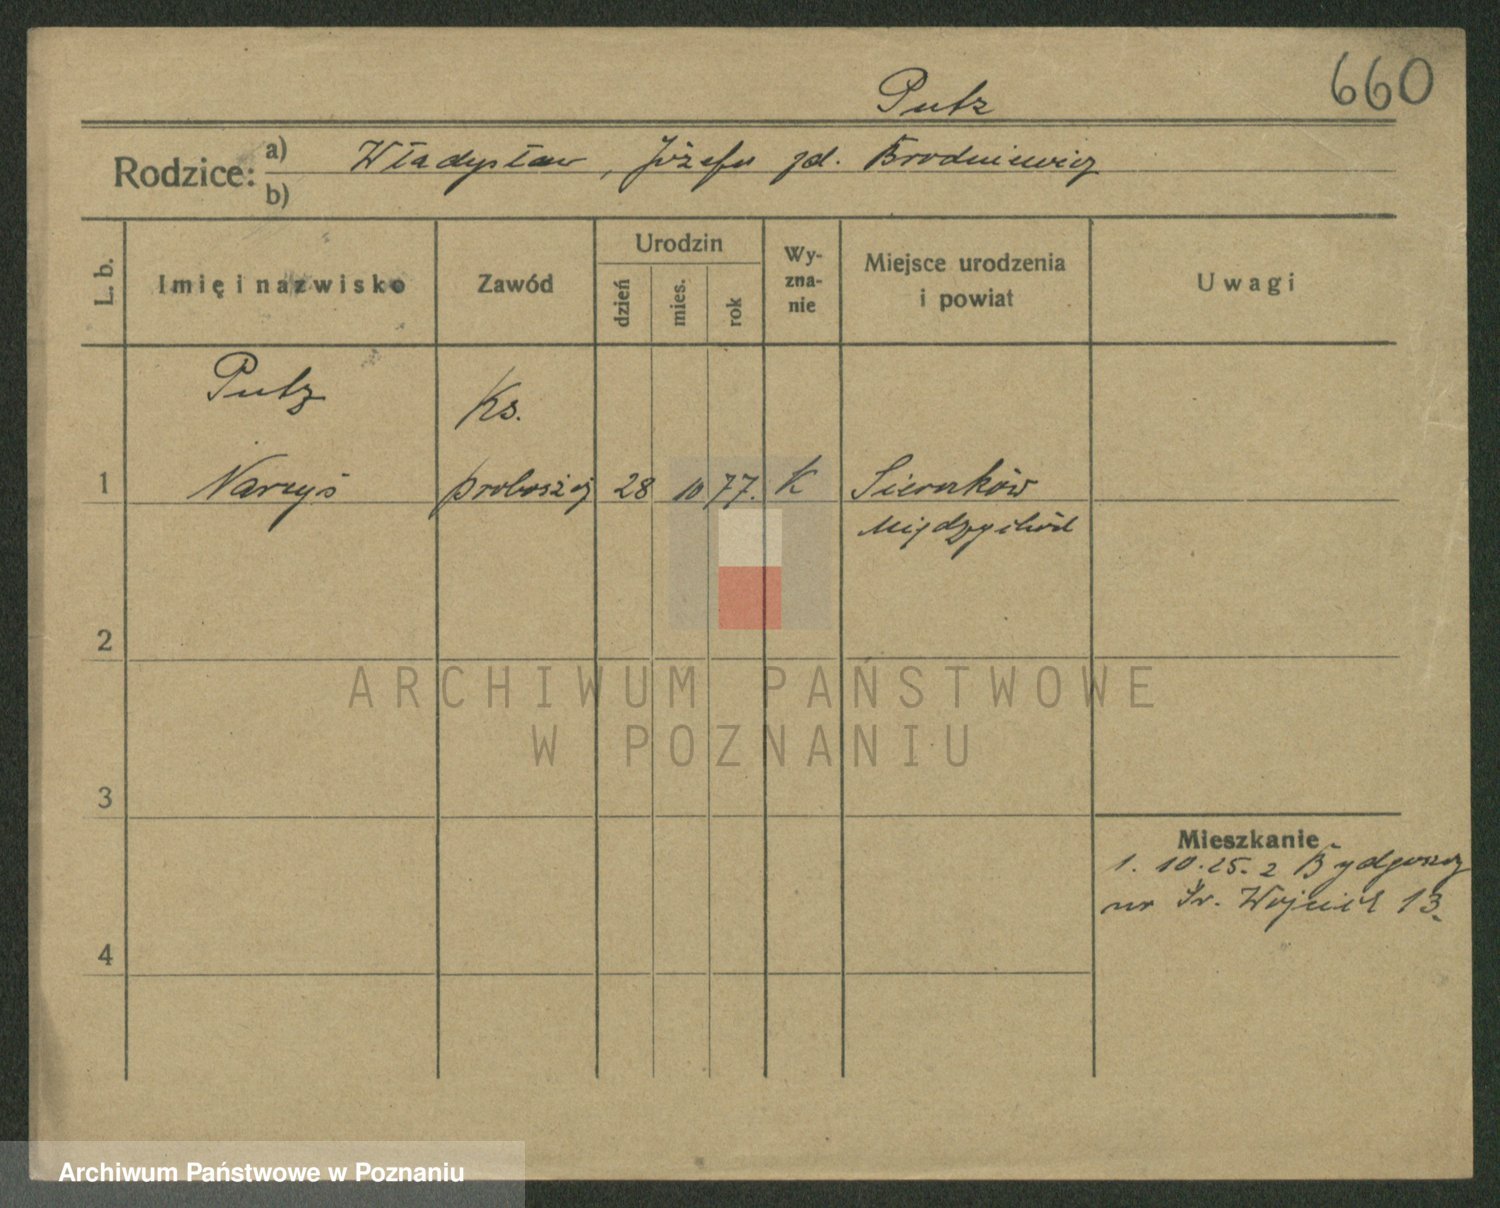 660
Putz
Rodzice:
a) Władysław, Józefa zd. Brodniewicz
b)
L. b.
Imię i nazwisko
Zawód
Urodzin
dzień
mies.
rok
Wy-
zna-
nie
Miejsce urodzenia
i powiat
Uwagi
Putz
Ks.
1 Narcyś proboszcz 28 10 77. K Sieraków
Międzychód
2
3
4
Mieszkanie
1. 10.25. z Bydgoszcz
na Św. Wojciech 13.
ARCHIWUM PAŃSTWOWE
W POZNANIU
Archiwum Państwowe w Poznaniu